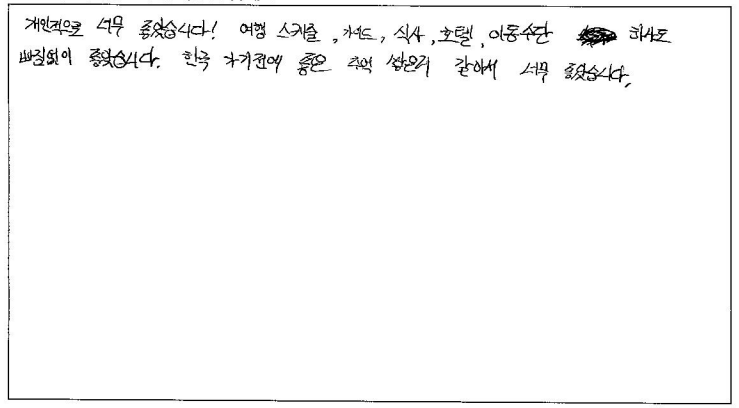 개인적으로 너무 좋았습니다! 여행 스케줄, 가이드, 식사, 호텔, 이동수단 하나도
빠짐없이 좋았습니다. 한국 가기전에 좋은 추억 쌓은거 같아서 너무 좋았습니다.